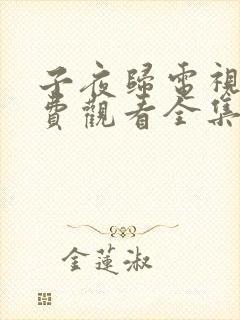 子夜歸電視
費觀看全集
金蓮淑